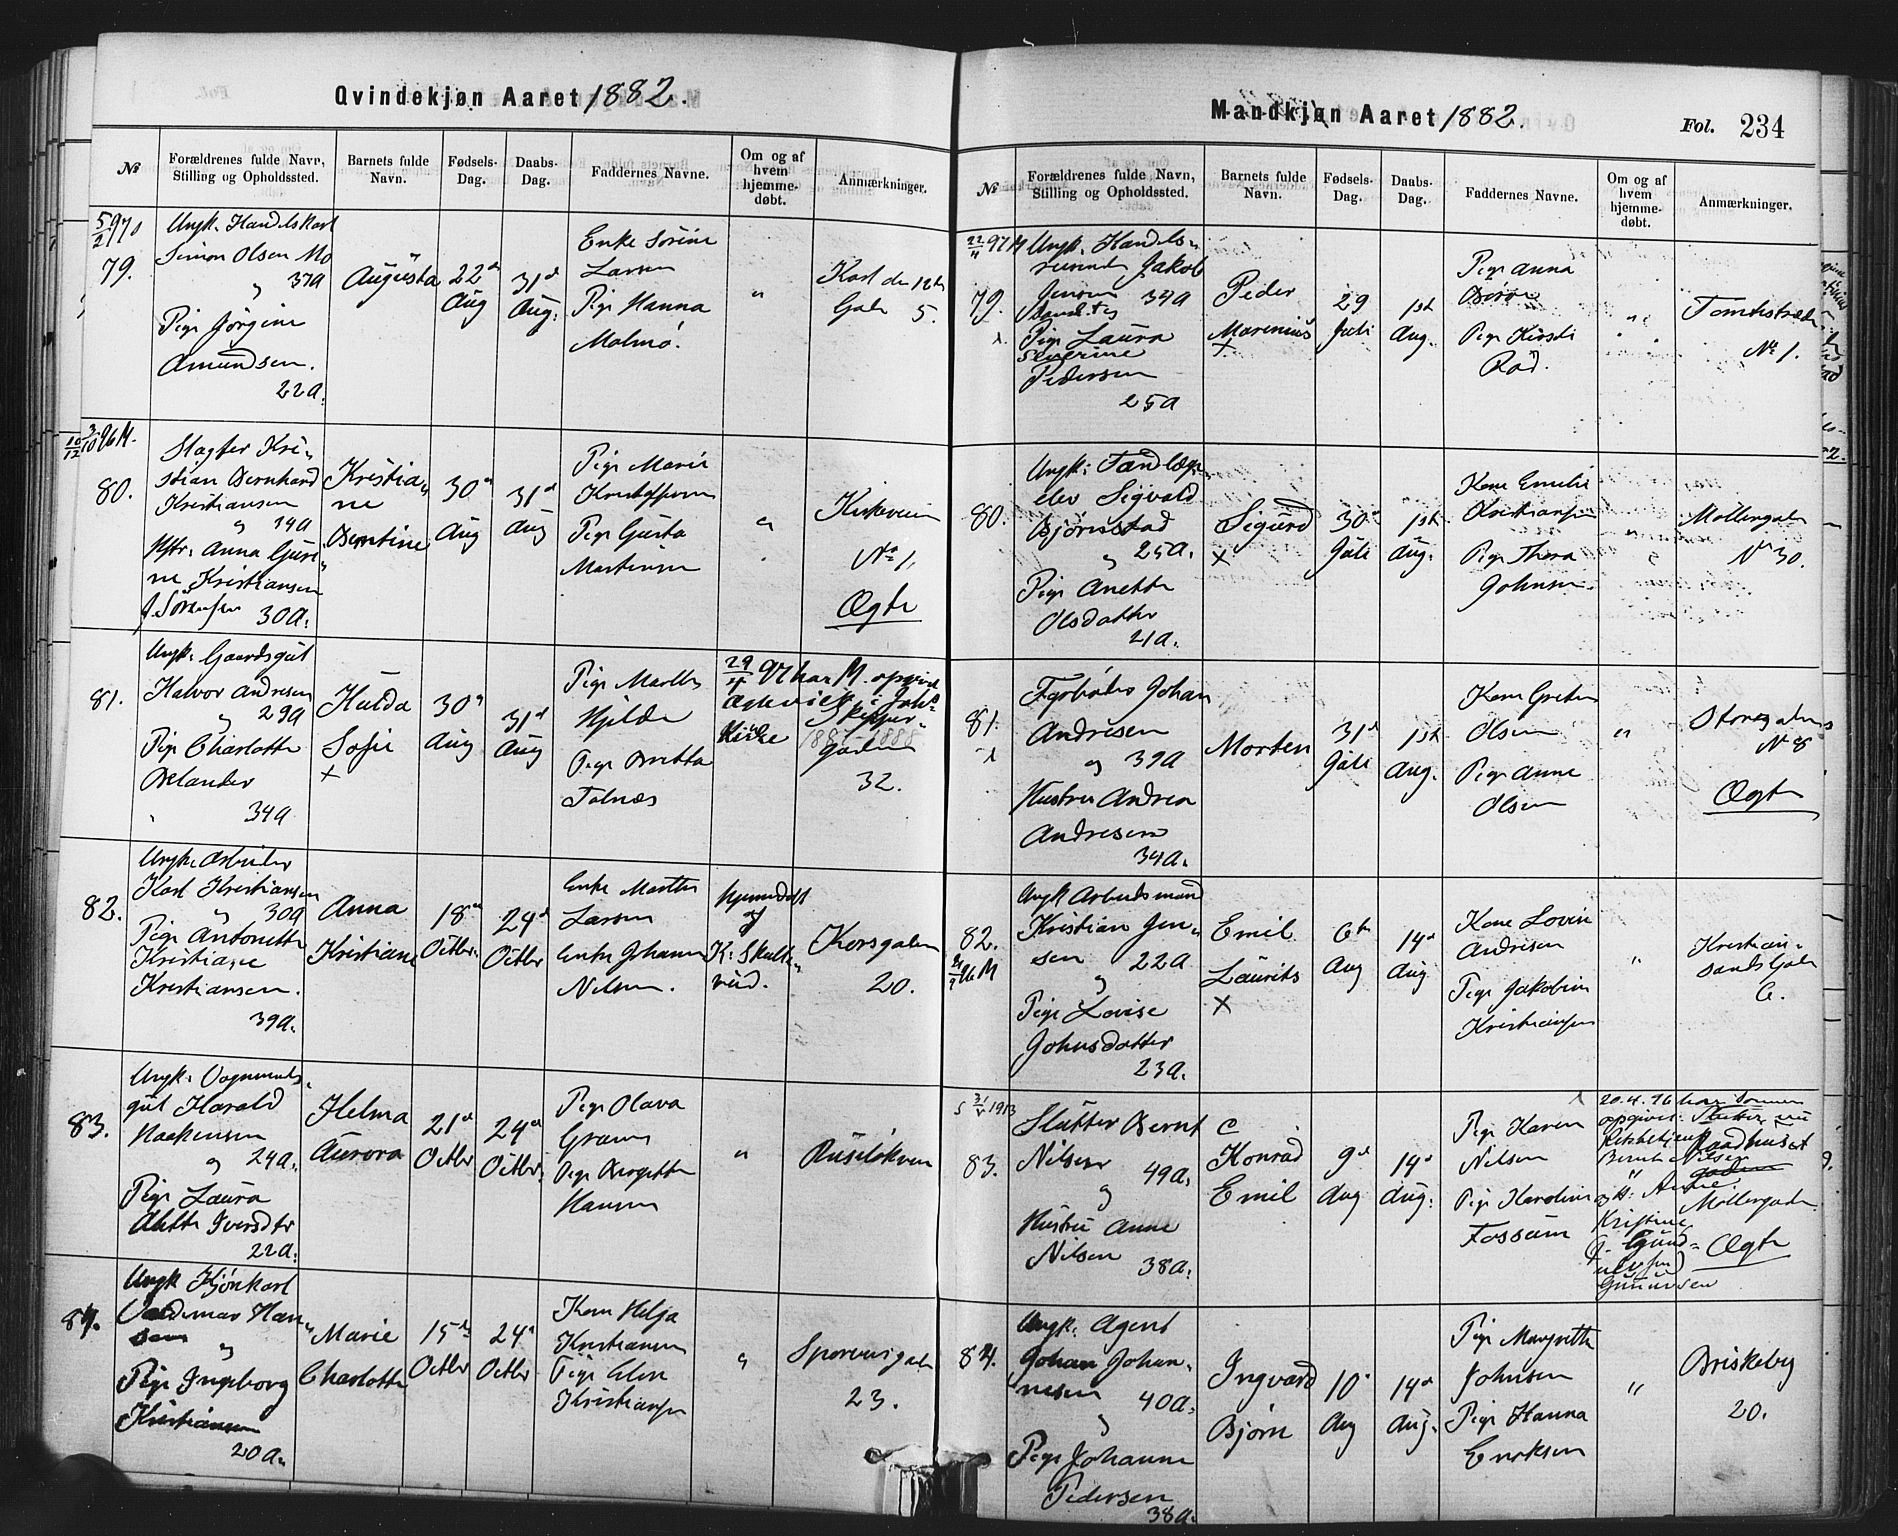 Qvindekjøn Aaret 1882.
№
Forældrenes fulde Navn,
Stilling og Opholdssted.
Barnets fulde
Navn.
Fødsels-
Dag.
Daabs-
Dag.
Faddernes Navne.
Om og af
hvem
hjemme-
døbt.
Anmærkninger.
79.
Ungk. Handelskarl
Simon Olsen Mo
37a
Pige Jørgine
Amundsen.
22a.
Augusta
22d
Aug
31d
Aug.
Enke Sørine
Larsen
Pige Hanna
Malmö.
"
Karl den 12te
Gade 5.
80.
Slagter Kri-
stian Bernhard
Kristiansen
og 19a
Hstr. Anna Guri-
ne Kristiansen
f. Sørensen 30a.
Kristia-
ne
Berntine
30d
Aug
31d
Aug
Pige Marie
Kristoffersen
Pige Gusta
Martinsen
"
Kirkeveien
No 1.
Ægte
81.
Ungk. Gaardsgut
Halvor Andresen
og 29a
Pige Charlotte
34a
Hulda
Sofie
×
30d
Aug
31d
Aug
Pige Marthe
Hjelde
Pige Berttha
Tofnæs
29/4 97 har M. opgivet
Kirke
Skipper-
gaden
32.
82.
Ungk. Arbeider
Karl Kristiansen
og 30a
Pige Antonette
Kristiane
Kristiansen.
39a.
Anna
Kristiane
18d
Octbr.
24d
Octbr
Enke Marthe
Larsen
Enke Johanne
Nilsen.
Hjemmedøbt
af
K. Skulle-
rud.
Korsgaden
20.
83.
Ungk. Vognmands-
gut Harald
Haakensen
og 24a.
Pige Laura
Alette Iversdtr
22a.
Helma
Aurora
21d
Octbr
24d
Octbr.
Pige Olava
Gram
Pige Bergitte
Hansen
"
Ruseløkveien
84.
Ungk Kjørkarl
Valdemar Han-
sen og
Pige Ingeborg
Kristiansen
20a.
Marie
Charlotte
15de
Octbr
24d
Octbr
Kone Helja
Kristiansen
Pige Elen
Kristiansen
"
Sporveisgaden
23.
Mandkjøn Aaret 1882.
Fol. 234
№
Forældrenes fulde Navn,
Stilling og Opholdssted.
Barnets fulde
Navn.
Fødsels-
Dag.
Daabs-
Dag.
Faddernes Navne.
Om og af
hvem
hjemme-
døbt.
Anmærkninger.
22/4 97 M
79.
Ungk. Handels-
reisende Jakob
Jensen 34a
Pige Laura
Severine
Pedersen
25a
Peder
Marenius
×
29
Juli
1st
Aug.
Pige Anna
Pige Kirsti
Rød.
"
Tomtestræde
No 1.
80.
Ungk. Tandlæge-
elev Sigvald
Bjørnstad
og 25a.
Pige Anette
Olsdatter
21a.
Sigurd
×
30d
Juli
1st
Aug.
Kone Emilie
Kristiansen
Pige Thora
Johnsen.
"
Møllergaden
No 30.
81.
Fyrbøder Johan
Andresen
og 39a
Hustru Andrea
Andresen
34a.
Morten
31d
Juli
1st
Aug.
Kone Grethe
Olsen
Pige Anne
Olsen
"
Storgaden
No 8
Ægte
82.
Ungk Arbeidsmand
Kristian Jen-
sen 22a
og
Pige Lovise
Johnsdatter
23a.
Emil
Laurits
×
6te
Aug
14d
Aug
Kone Lovise
Andresen
Pige Jakobine
Kristiansen
"
Kristian-
sands Gade
6.
83.
Slutter Bernt
Nilsen 49a.
og
Hustru Anne
Nilsen 38a.
Konrad
Emil
9d
Aug
14d
Aug.
Pige Karen
Nilsen
Pige Karoline
Fossum
20.4.96 har
opgivet: Slutter nu
Bernt Nilsen
og H. Anne
Kristine
Raadhuset
Møllergaden
Ægte
84.
Ungk. Agent
Johan Johan-
nesen 40a.
og
Pige Johanne
Pedersen
38a.
Ingvard
Bjørn
10d
Aug
14d
Aug.
Pige Margrethe
Johnsen
Pige Hanna
Eriksen
"
Briskeby
20.